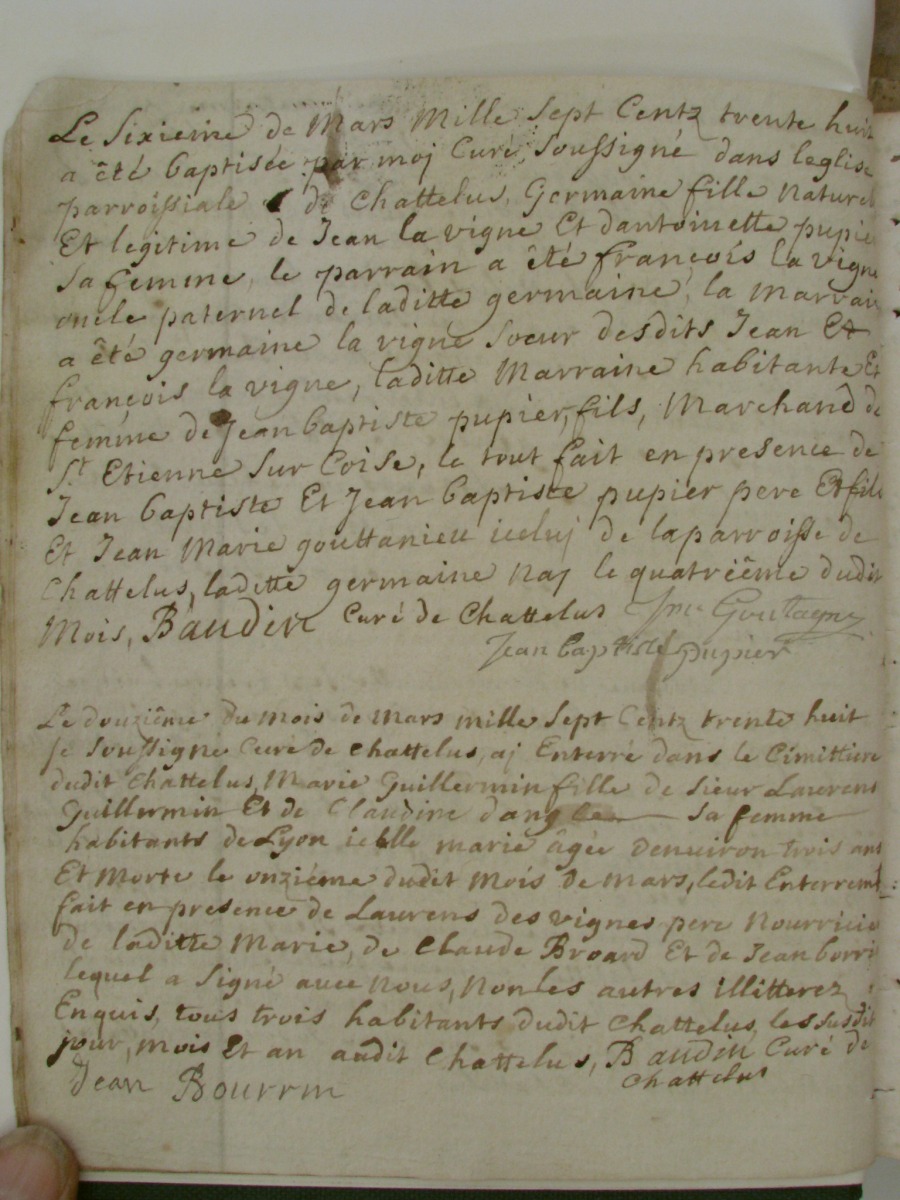 Le Sixieme de Mars Mille Sept Centz trente huit
a été baptisée par moj Curé Soussigné dans leglise
parroissiale de Chattelus, Germaine fille naturel
Et legitime de Jean la vigne Et dantoinette pupie
Sa femme, le parrain a été françois la vigne
oncle paternel de laditte germaine, la marrain
a été germaine la vigne Soeur desdits Jean Et
françois la vigne, laditte Marraine habitante Et
femme de Jean baptiste pupier, fils, Marchand de
St Etienne Sur Coise, le tout fait en presence de
Jean baptiste Et Jean baptiste pupier pere Et fils
Et Jean Marie gouttanieu iceluj de laparroisse de
Chattelus, laditte germaine naj le quatriême dudit
Mois, Baudin Curé de Chattelus Jme Goutagny
Jean baptiste pupier
Le douziême du mois de Mars mille Sept Centz trente huit
Je Soussigne Curé de Chattelus, aj Enterré dans le Cimittiere
dudit Chattelus, Marie Guillermin fille de Sieur Laurens
Guillermin Et de Claudine dangle Sa femme
habitants de Lyon icelle marie âgée denuiron trois ans
Et Morte le onziéme dudit Mois de Mars, ledit Enterremt
fait en presence de Laurens des vignes pere Nourricie
de laditte Marie, de Claude Broard Et de Jean borri
lequel a Signé auec Nous, Non les autres illitterez
Enquis, tous trois habitants dudit Chattelus, les susdit
jour, mois Et an audit Chattelus, Baudin Curé de
Chattelus
Jean Bourrin